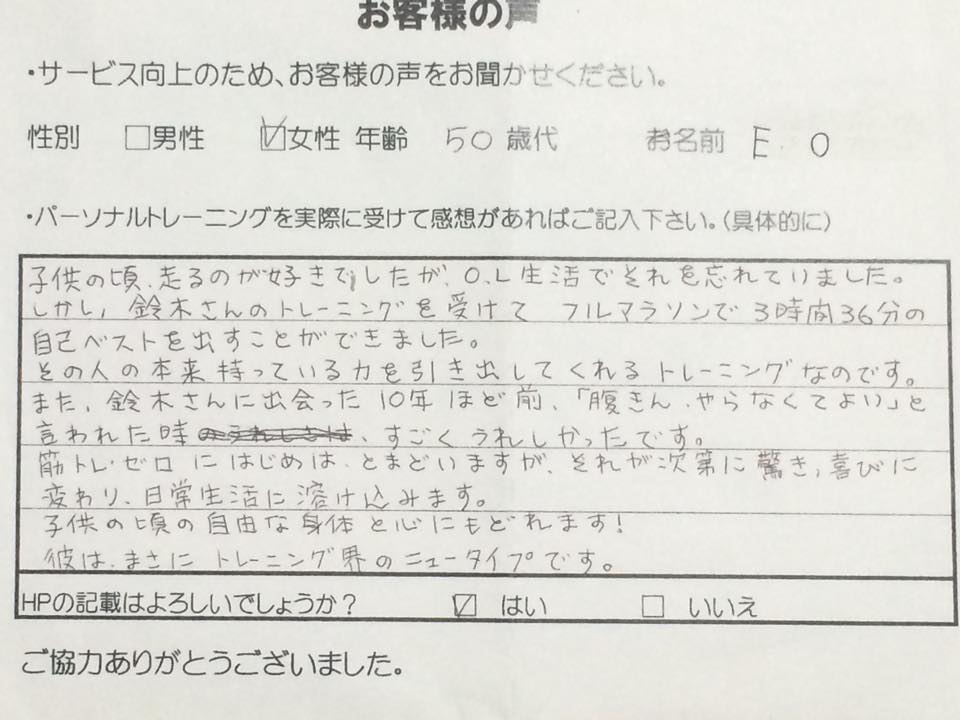 お客様の声
・サービス向上のため、お客様の声をお聞かせください。
性別 □男性 ☑女性 年齢 50 歳代 お名前 E. O
・パーソナルトレーニングを実際に受けて感想があればご記入下さい。(具体的に)
子供の頃、走るのが好きでしたが、O.L生活でそれを忘れていました。
しかし、鈴木さんのトレーニングを受けて フルマラソンで3時間36分の
自己ベストを出すことができました。
その人の本来持っている力を引き出してくれるトレーニングなのです。
また、鈴木さんに出会った10年ほど前、「腹きん、やらなくてよい」と
言われた時、すごくうれしかったです。
筋トレ・ゼロにはじめは、とまどいますが、それが次第に驚き、喜びに
変わり、日常生活に溶け込みます。
子供の頃の自由な身体と心にもどれます!
彼は、まさにトレーニング界のニュータイプです。
HPの記載はよろしいでしょうか? ☑ はい □ いいえ
ご協力ありがとうございました。